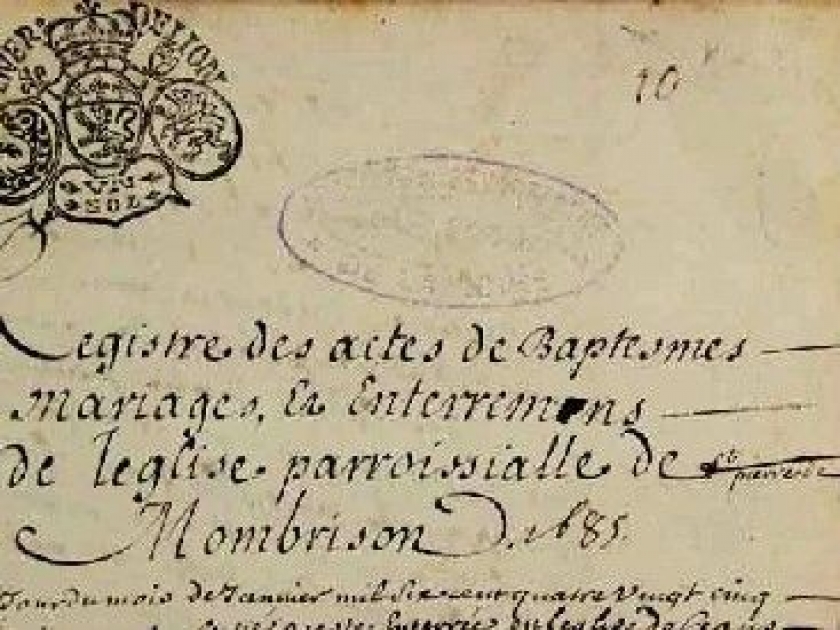 DELION
VN
SOL
10
Registre des actes de Baptesmes
Mariages, Et Enterremens
de leglise parroissialle de st
pierre de
Mombrison D. 1685
Jour du mois de Janvier mil six cent quatre vingt cinq
leglise de